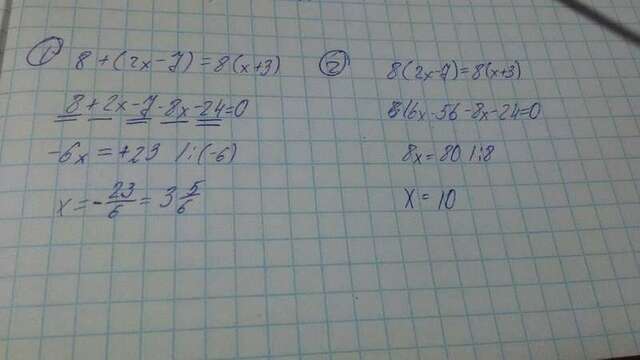 ① 8 + (2x - 7) = 8(x+3)
8 + 2x - 7 - 8x - 24 = 0
-6x = +23 /:(-6)
x = - 23/6 = 3 5/6
② 8(2x-7) = 8(x+3)
16x - 56 - 8x - 24 = 0
8x = 80 /:8
x = 10